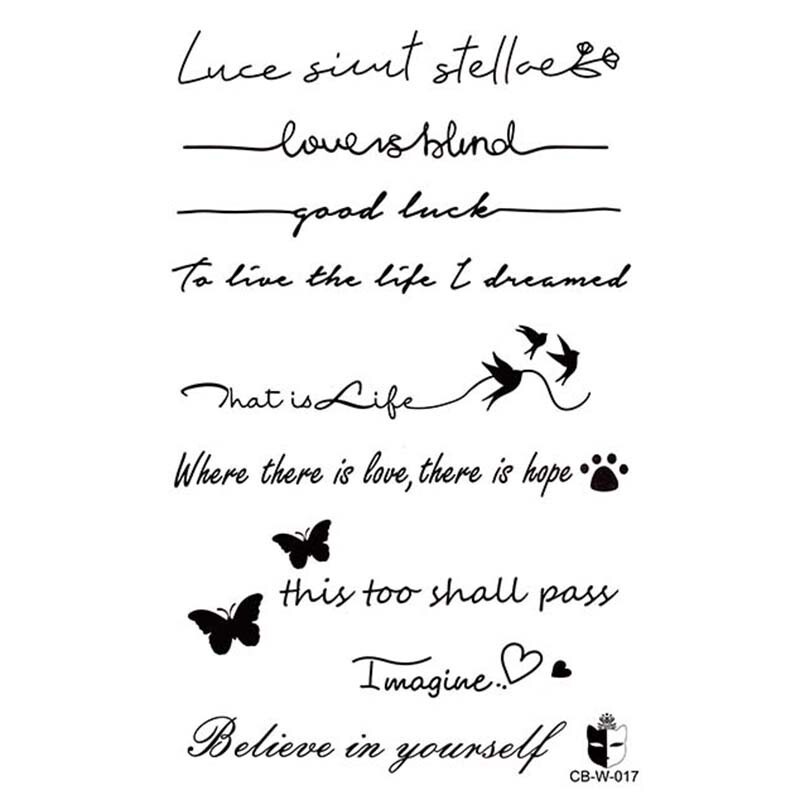 Luce siunt stellae
love is blind
good luck
To live the life I dreamed
That is Life
Where there is love, there is hope
this too shall pass
Imagine..
Believe in yourself
CB-W-017